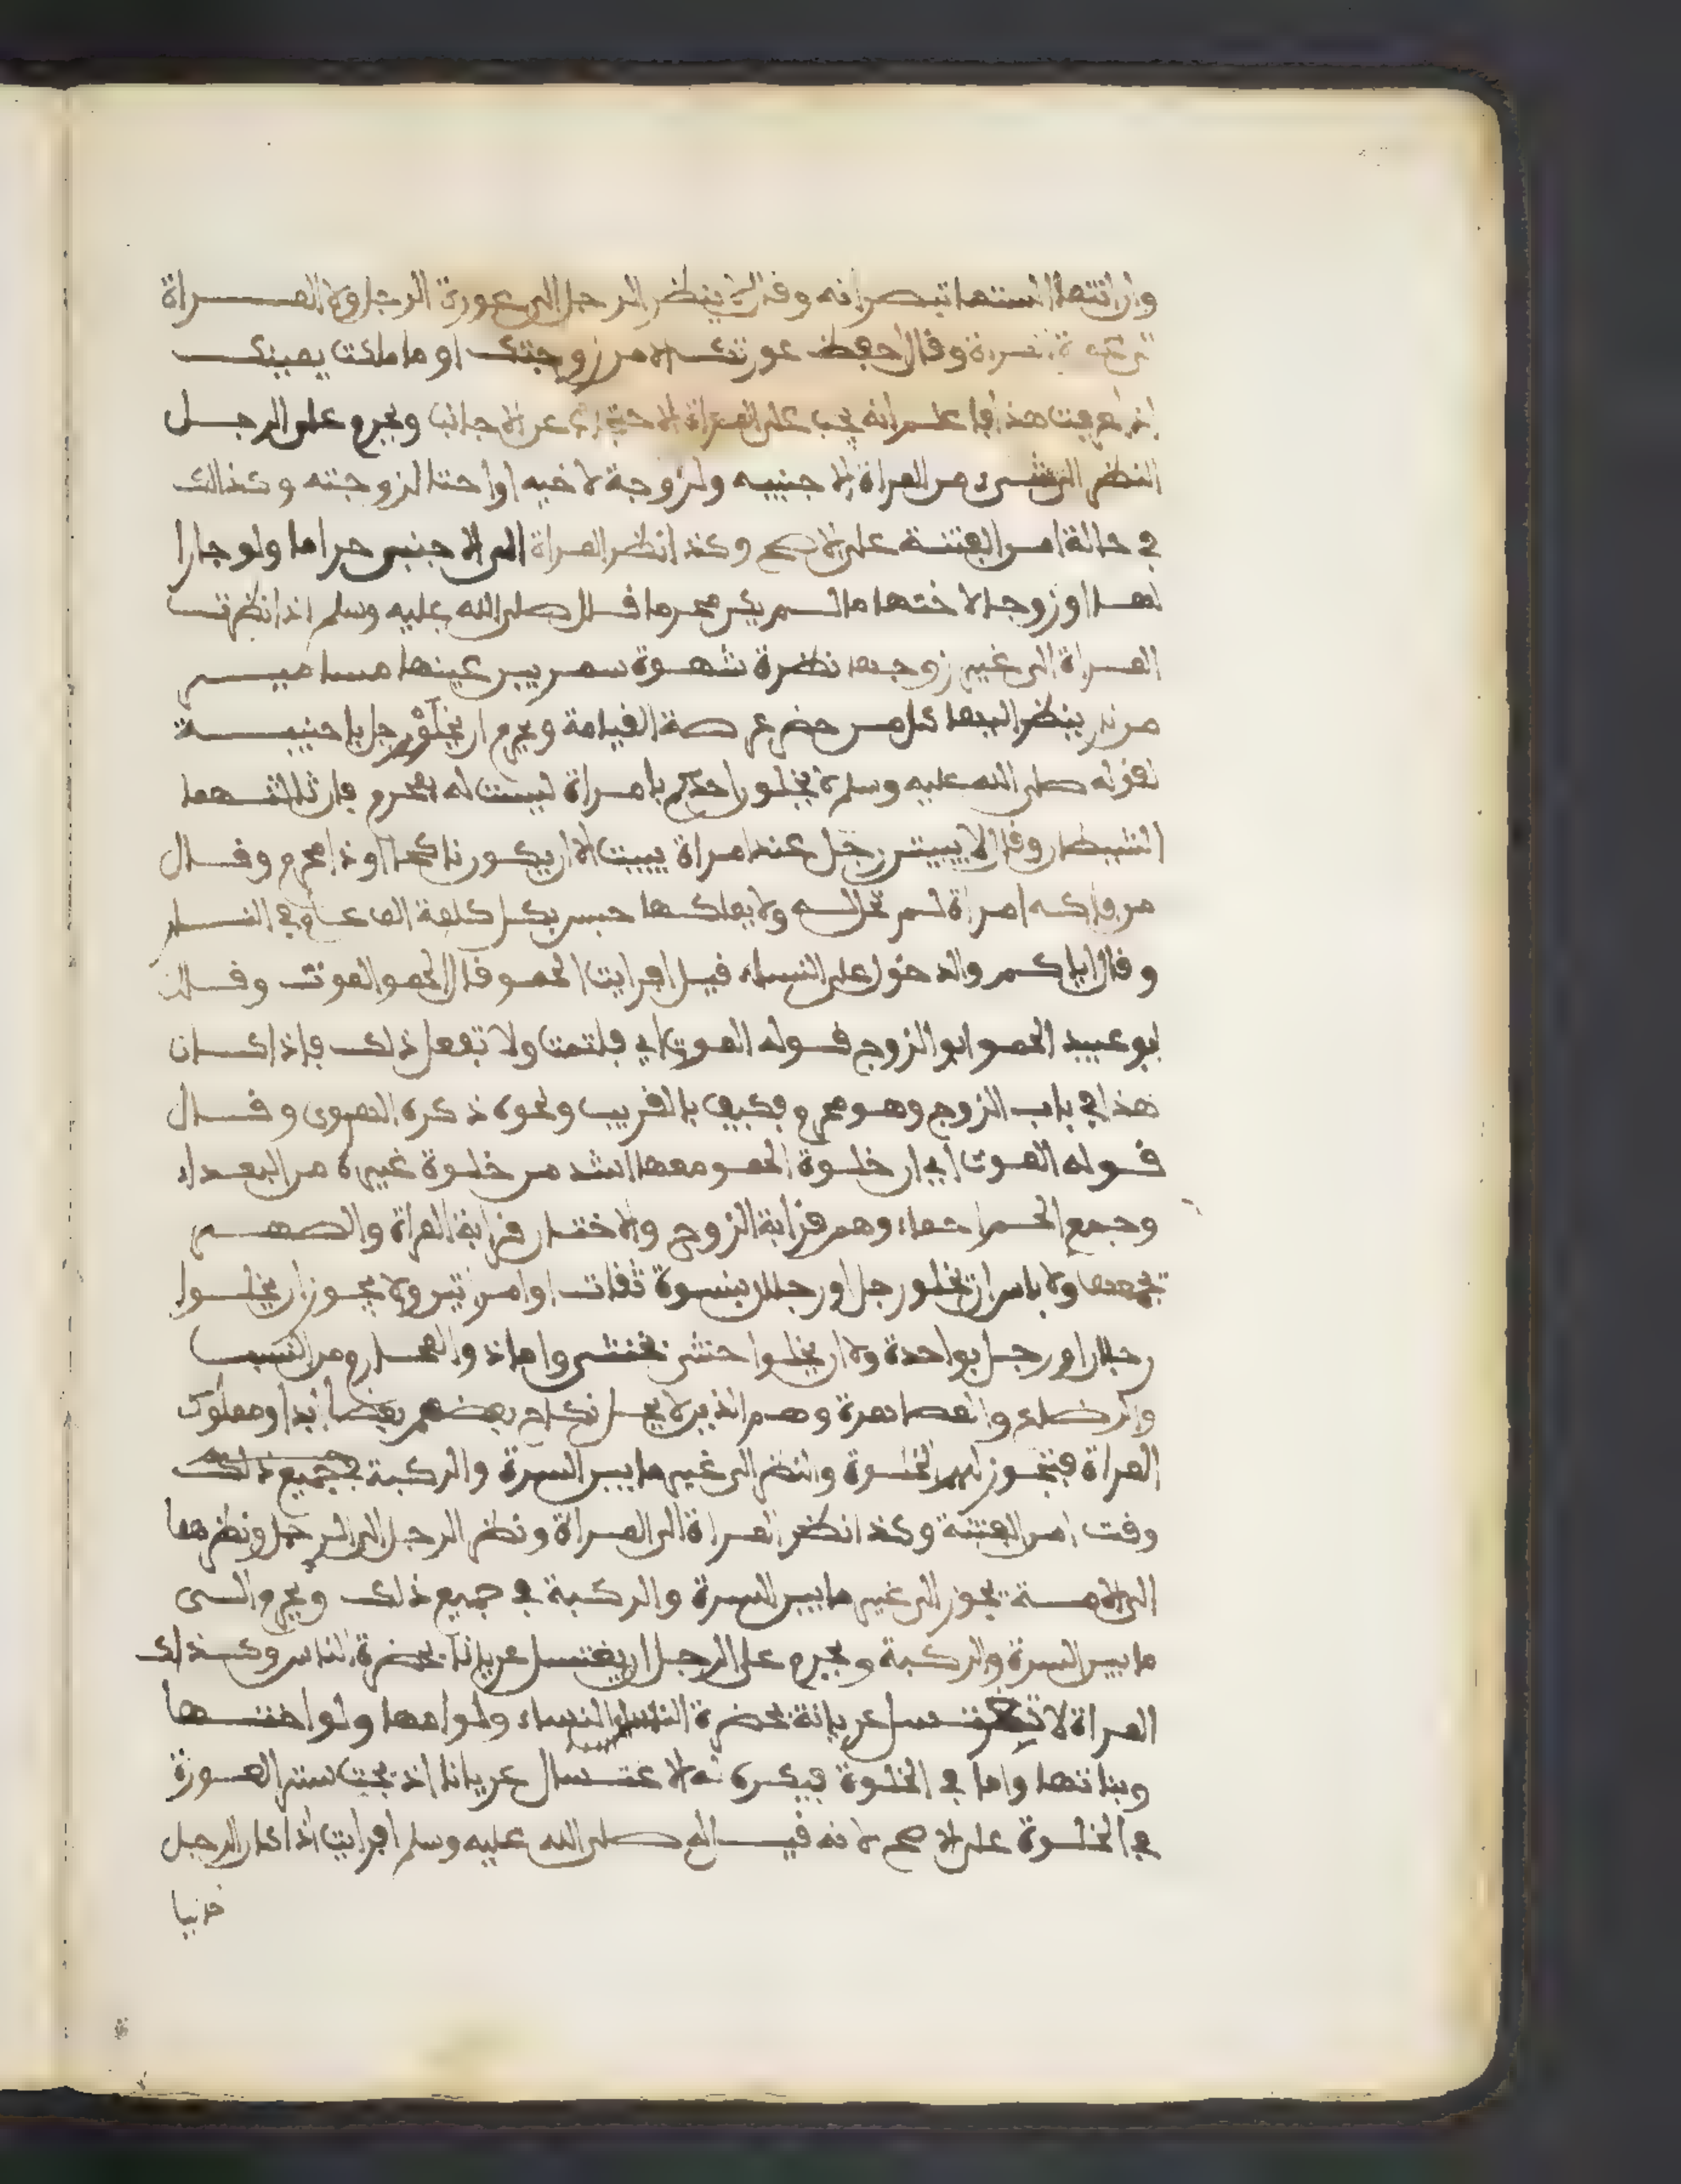 وان انتما الستما تبصرانه وقال لا ينظر الرجل الى عورة الرجل ولا المراة
الى عورة المراة وقال احفظ عورتك الا من زوجتك او ما ملكت يمينك
اذا عرفت هذا فاعلم انه يجب على المراة الاحتجاب عن الاجانب ويحرم على الرجل
النظر الى شىء من المراة الاجنبيه ولزوجة لاخيه او اختا لزوجته وكذالك
في حالة امن الفتنة على الاصح وكذا نظر المراة الى الاجنبي حراما ولو جارا
لها او زوجا لاختها ما لم يكن محرما قال صلى الله عليه وسلم اذا نظرت
المراة الى غير زوجها نظرة شهوة سمر بين عينها مسامير
من نار ينظر اليها كل من حضر عرصة القيامة ويحرم ان يخلو رجل باجنبية
لقوله صلى الله عليه وسلم لا يخلون احدكم بامراة ليست له بمحرم فان ثالثهما
الشيطان وقال لا يبيتن رجل عند امراة ببيت الا ان يكون ناكحا او ذا محرم وقال
من فاكه امراة لم تحل له ولا يملكها حبس بكل كلمة الف عام في النار
وقال اياكم والدخول على النساء قيل افرايت الحمو قال الحمو الموت وقال
ابو عبيد الحمو ابو الزوج قوله الموت اي فلتمت ولا تفعل ذلك فاذا كان
هذا في باب الزوج وهو محرم فكيف بالغريب ونحوه ذكره الهروى وقال
قوله الموت اي ان خلوة الحمو معها اشد من خلوة غيره من البعداء
وجمع الحم احماء وهم قرابة الزوج والاختان قرابة المراة والصهر
يجمعها ولا باس ان يخلو رجل او رجلان بنسوة ثقات او امراتين ولا يجوز ان يخلوا
رجلان او رجل بواحدة ولا ان يخلوا خنثى بخنثى واما ذو المحارم من النسب
والرضاع والمصاهرة وهم الذين لا يحل نكاح بعضهم بعضا ابدا ومملوك
المراة فتجوز لهم الخلوة والنظر الى غير ما بين السرة والركبة في جميع ذلك
وقت امن الفتنة وكذا نظر المراة الى المراة ونظر الرجل الى الرجل ونظرهما
الى الامة يجوز الى غير ما بين السرة والركبة في جميع ذلك ويحرم الى
ما بين السرة والركبة ويحرم على الرجل ان يغتسل عريانا بحضرة الناس وكذلك
المراة لا تغتسل عريانة بحضرة النساء ولو امها ولو اختها
وبناتها واما في الخلوة فيكره له الاغتسال عريانا اذ يجب ستر العورة
في الخلوة على الاصح لانه قيل له صلى الله عليه وسلم افرايت اذا كان الرجل
خليا